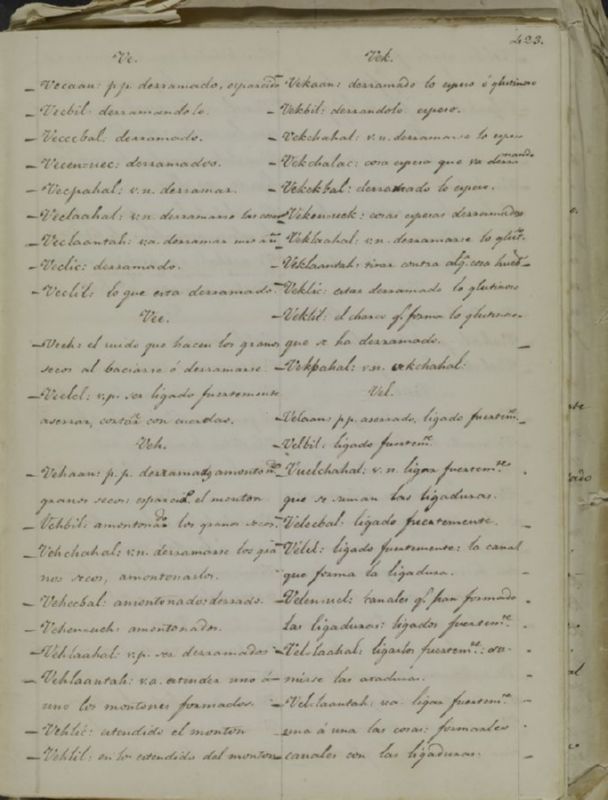 423.
Ve.
— Vecaan: p.p. derramado, esparcido
— Vecbil: derramandolo.
— Vececbal: derramado.
— Vecen-uec: derramados.
— Vecpahal: v.n. derramar.
— Veclaahal: v.n. derramarse las cosas
— Veclaantah: v.a. derramar
— Veclic: derramado.
— Veclil: lo que esta derramado.
Vee.
— Vech: el ruido que hacen los granos
secos al baciarse ó derramarse.
— v.p. ser ligado fuertemente
aserrar, cortar con cuerdas.
Veh.
— Vehaan: p.p. derramado, amontonado
granos secos: esparcido el monton
— Vehbil: amontonado los granos secos.
— Vehchahal: v.n. derramarse los gra
nos secos, amontonarlos.
— Vehecbal: amontonado:
— Vehen-ueh: amontonados.
— Vehlaahal: v.p. ser derramados
— Vehlaantah: v.a. estender uno á
uno los montones formados.
— Vehlic: estendido el monton
— Vehlil: en lo estendido del monton
Vek.
— Vekaan: derramado lo espeso ó glutinoso
— Vekbil: derrandolo espeso.
— Vekchahal: v.n. derramarse lo espeso
— Vekchalac: cosa espesa que va derramando
— Vekekbal: derramado lo espeso.
— Veken-uek: cosas espesas derramados
— Veklaahal: v.n. derramarse lo glut.
— Veklaantah: tirar contra alg. cosa
— Veklic: estar derramado lo glutinoso
— Veklil: el charco q. forma lo glutinoso
que se ha derramado.
— Vekpahal: v.n. vekchahal:
Vel.
— Velaan: p.p. aserrado, ligado fuertem.te
— Velbil: ligado fuertem.te
— Vuelchahal: v.n. ligar fuertem.te
que se suman las ligaduras.
— Velecbal: ligado fuertemente.
— Velel: ligado fuertemente: la canal
que forma la ligadura.
— Velen-uel: canales q. han formado
las ligaduras: ligados fuertem.te
— Vel-laahal: ligarlos fuertem.te:
nirse las ataduras.
— Vel-laantah: v.a. ligar fuertem.te
una á una las cosas: formarles
canales con las ligaduras.